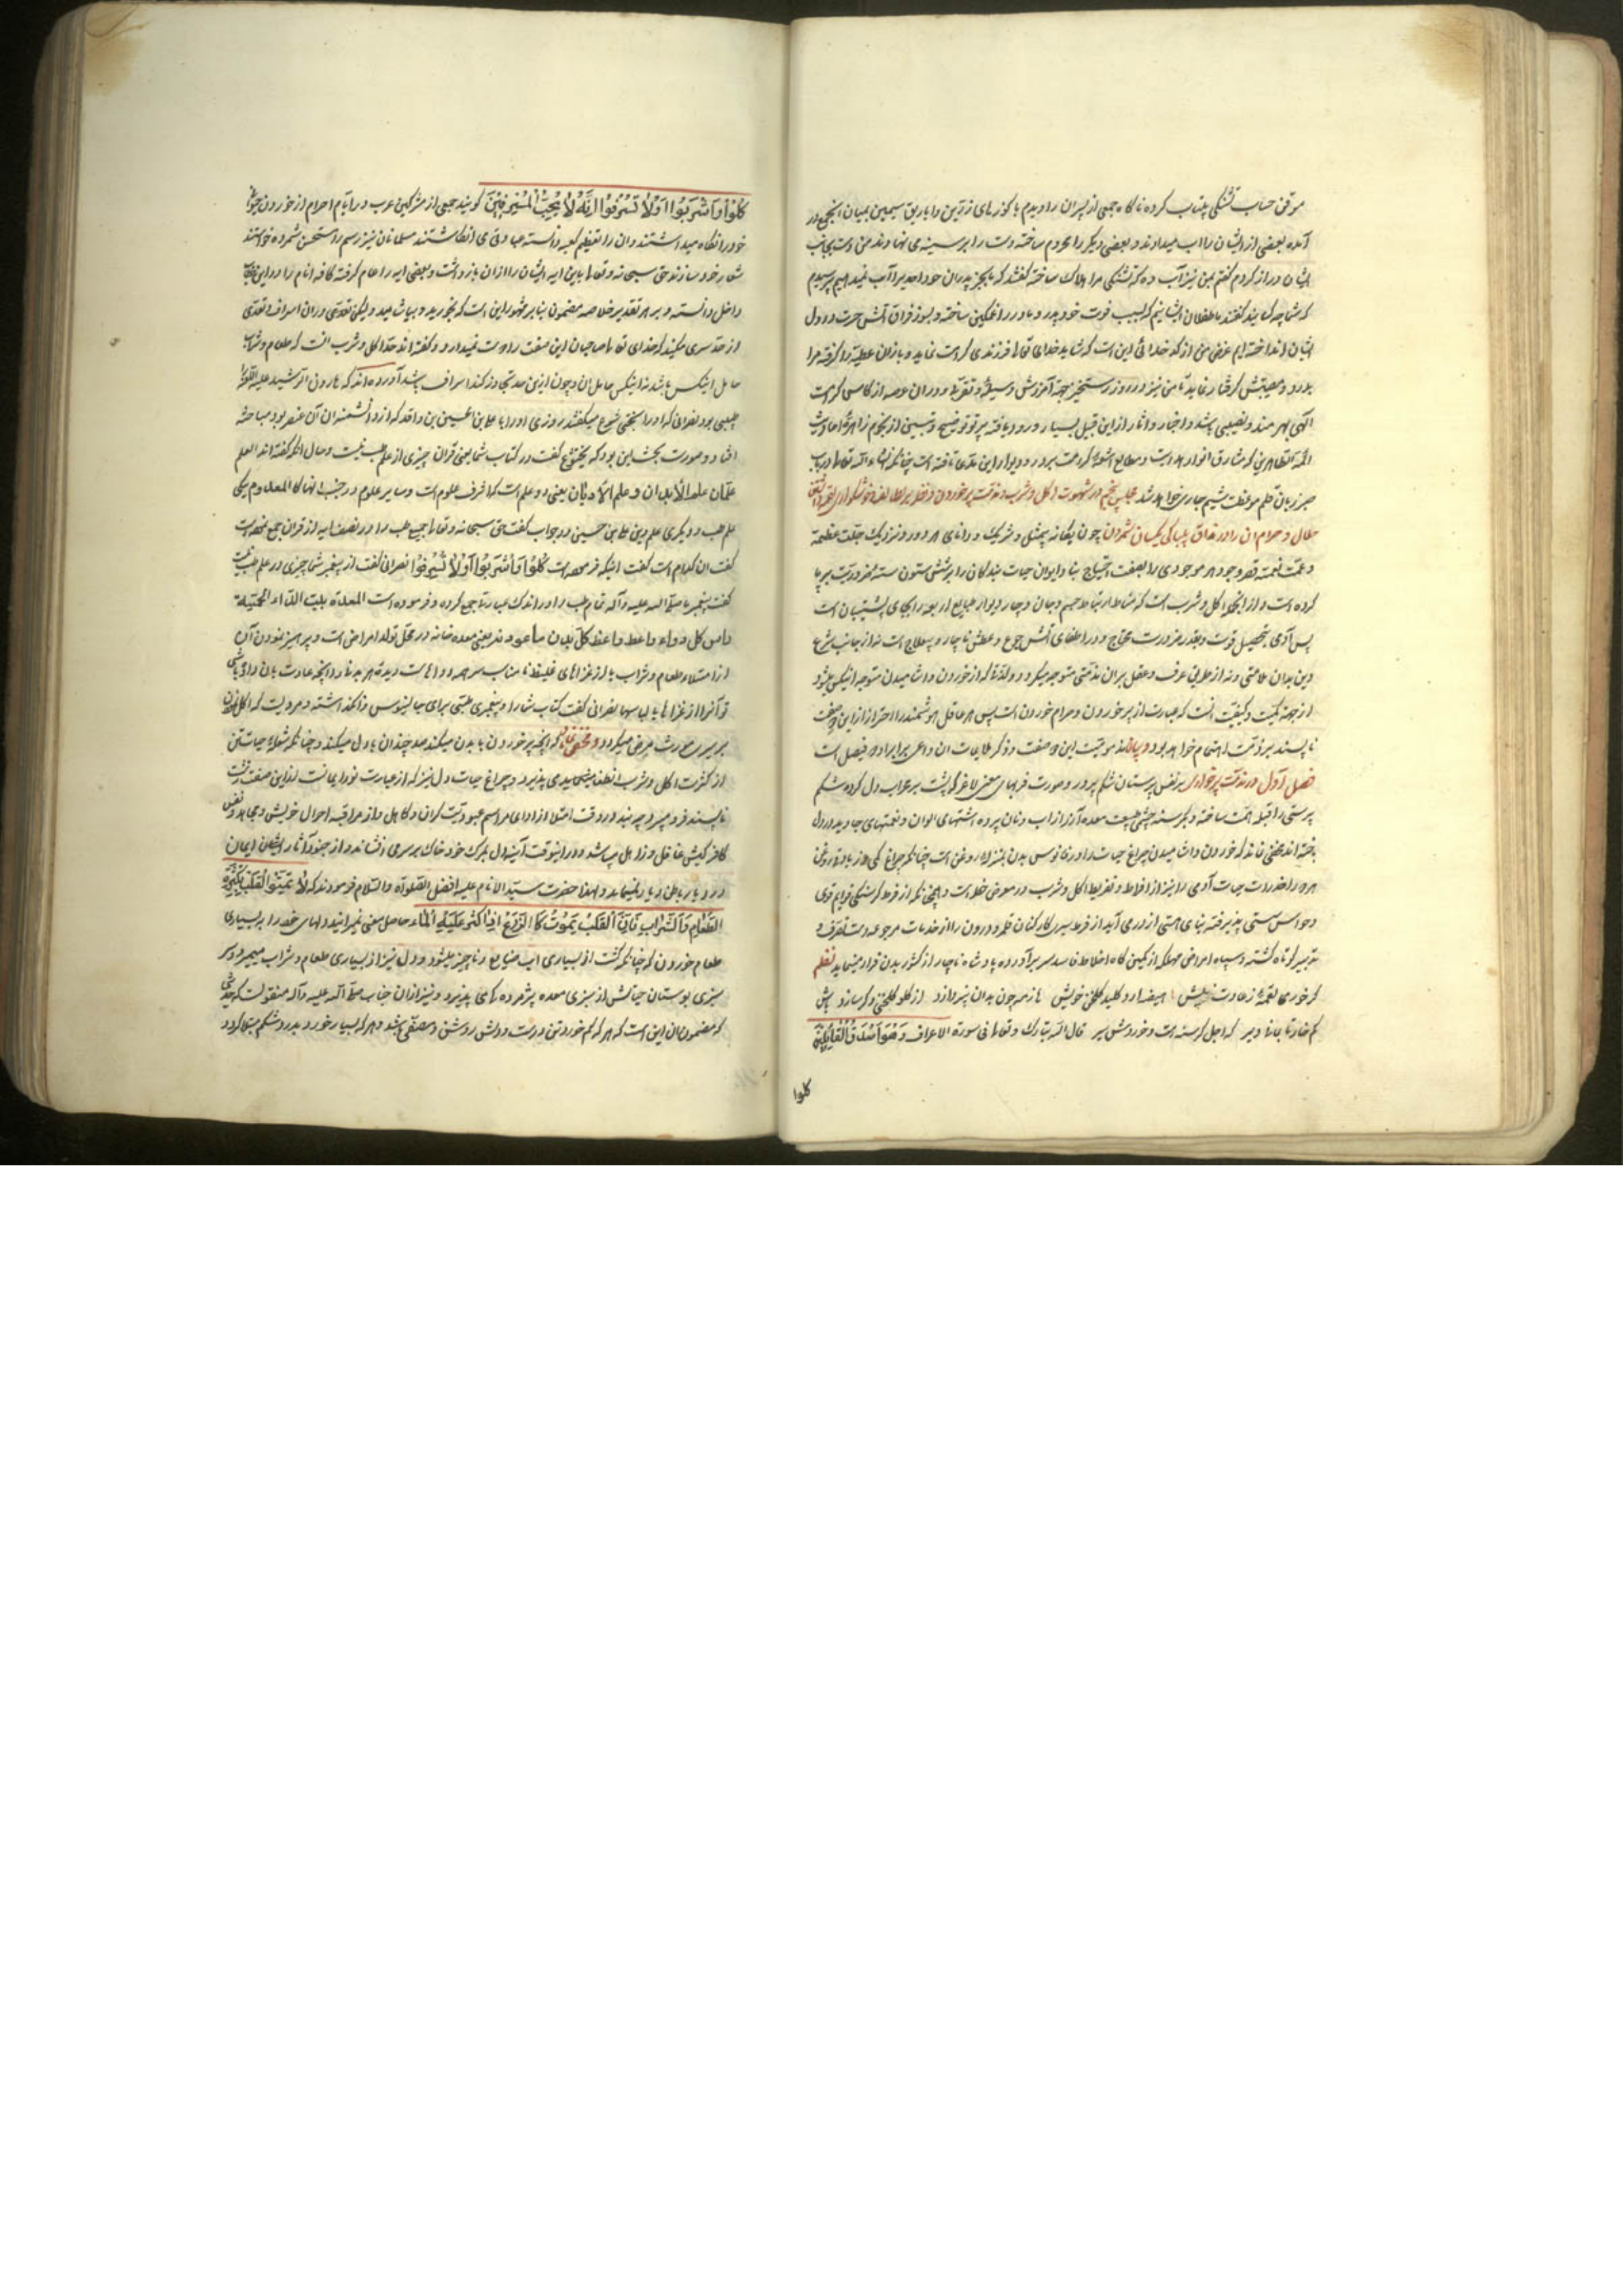 موقف حساب تشنگی بیتاب کرده ناکاه جمعی از پسران را دیدم با کوزهای زرین و اباریق سیمین بمیان انجمع در
آمده بعضی از ایشان را اب میدادند و بعضی دیکر را محروم ساخته دست را بر سینه می نهادند من دست بجانب
ایشان دراز کردم کفتم بمن نیز آب ده که تشنکی مرا هلاک ساخته کفتند که ما بجز پدران خود احدیرا آب نمیدهیم پرسیدم
که شما چه کسانید کفتند ما طفلان ایشانیم که بسبب فوت خود پدر و مادر را غمکین ساخته و بسوز فراق آتش حسرت در دل
ایشان انداخته ایم غرض من از کدخدائی این است که شاید خدای تعالی فرزندی کرامت نماید و باز ان عطیه را کرفته مرا
بدرد و مصیبتش کرفتار نماید تا من نیز در روز رستخیز جهة آمرزش وسیله و در ان عرصه از کاس کرامت
الهی بهره مند و نصیبی باشد و اخبار و اثار از این قبیل بسیار ورود یافته پرتو توضیح و تبیین از نجوم زاهره احادیث
ائمة الطاهرین که مشارق انوار هدایت و مطالع اشعه کرامت بر در و دیوار این مدعی تافته است چنانکه انشاء الله تعالی در باب
صبر زبان قلم موعظت شیم جاری خواهد شد مجلس پنجم در شهوت اکل و شرب و مذمت پر خوردن و نظر بر لذایذ و خوشکواری لقمه
حلال و حرام ان را در مذاق بیباکی یکسان شمردن چون یکانه بیمثل و شریک و دانای هر دور و نزدیک جلت عظمته
و عمت نعمته قصر وجود هر موجودی را بصفت احتیاج بنا و ایوان حیات بندکان را بر شش ستون سته ضروریت بر پا
کرده است و از انجمله اکل و شرب است که مناط ارتباط جسم و جان و چار دیوار طبایع اربعه را بجای پشتیبان است
پس آدمی بتحصیل قوت و بقدر ضرورت محتاج و در اطفای آتش جوع و عطش ناچار و بیعلاج است نه از جانب شرع
و دین بدان ملامتی و نه از طریق عرف و عقل بران مذمتی متوجه میکردد و لذتها که از خوردن و اشامیدن متوجه انیکس میشود
از جهة کمیت و کیفیت انست که عبارت از پر خوردن و حرام خوردن است پس هر عاقل هوشمند را احتراز از این دو صفت
ناپسند بر ذمت اهتمام خواهد بود و بیان مذمومیت این دو صفت و ذکر علامات ان داعی بر ایراد دو فصل است
فصل اول در مذمت پر خواری بر نفس پرستان شکم پرور و صورت فربهان معنی لاغر که پشت بر محراب دل کرده شکم
پرستی را قبله همت ساخته و بکرسنه چشمی طبیعت معده آز را از اب و نان پر و ده اشتهای الوان و نعمتهای جاوید در دل
باخته اند مخفی نماند که خوردن و اشامیدن چراغ حیات را در فانوس بدن بمنزله روغن است چنانکه چراغ کمی و زیادتی روغن
هر دو را ضرر است حیات آدمی را نیز از افراط و تفریط اکل و شرب در معرض خطر است و همچنانکه از فرط کرسنکی قوایم قوی
و حواس سستی پذیرفته بنای هستی از در می آید از فرط سیری کارکنان ظاهر و درون را از خدمات مرجوعه دست تصرف و
تدبیر کوتاه کشته و سپاه امراض مهلکه از کمین کاه اخلاط فاسد سر بر آورده پادشاه ناچار از کشور بدن فرار مینماید نظم
کر خوری لقمهٔ ز عادت بیش میفشارد کلید خویش تا ز سر چون بدان پردازد از کلو دکر سازد باش
کم خوار تا بمانی دیر که اجل کرسنه است و خوردش سیر قال الله تبارک و تعالی فی سورة الاعراف وَهُوَ اَصْدَقُ الْقَائِلِینَ
کلوا
کُلُوْا وَاشْرَبُوْا وَلَا تُسْرِفُوْا اِنَّهُ لَا یُحِبُّ الْمُسْرِفِینَ کویند جمعی از مشرکین عرب در ایام احرام از خوردن حیوانی
خود را نکاه میداشتند و ان را تعظیم کعبه دانسته عبادتی می انکاشتند مسلمانان نیز این رسم را مستحسن شمرده خواستند
شعار خود سازند حق سبحانه و تعالی باین ایه ایشان را از ان باز داشت و بعضی ایه را عام کرفته کافه انام را در این خطاب
داخل دانسته و بر هر تقدیر خلاصه مضمون بنابر مشهور این است که بخورید و بیاشامید و لیکن تعدی در ان اسراف و تعدی
از حد مکنید که خدای تعالی صاحبان این صفت را دوست نمیدارد و کفته اند حد اکل و شرب انست که طعام و شراب
حامل اینکس باشد نه اینکس حامل ان و چون از این حد تجاوز کند اسراف باشد آورده اند که هارون الرشید علیه اللعنه را
طبیبی بود نصرانی که او را بختیشوع میکفتند روزی او را با علی بن الحسین بن واقد که از دانشمندان آن عصر بود مباحثه
افتاد و صورت بحث این بود که بختیشوع کفت در کتاب شما یعنی قران چیزی از علم طب نیست و حال انکه کفته اند العلم
علمان علم الابدان و علم الادیان یعنی دو علم است که اشرف علوم است و سایر علوم در جنب انها کالمعدوم یکی
علم طب و دیکری علم دین علی بن حسین در جواب کفت حق سبحانه و تعالی جمیع طب را در نصف ایه از قران جمع نموده است
کفت ان کدام است کفت اینکه فرموده است کُلُوْا وَاشْرَبُوْا وَلَا تُسْرِفُوْا نصرانی کفت از پیغمبر شما چیزی در علم طب نیست
کفت پیغمبر ما صلی الله علیه و آله تمام طب را در اندک عبارتی جمع کرده و فرموده است المعدة بیت الداء والحمیة
راس کل دواء واعط کل بدن ما عودته یعنی معده خانه درد و محل تولد امراض است و پرهیز نمودن آن
از امتلاء طعام و شراب یا از غذاهای غلیظ نامناسب سر همه دواهاست و بده هر بدنی را انچه عادت بان داده باشی
تو آنرا از غذاها یا لباسها نصرانی کفت کتاب شما و پیغمبر شما طبی برای جالینوس وا نکذاشته و مرویست که اکل نمودن
بر سیری مورث مرض میکردد و مخفی نماند که انچه پر خوردن با بدن میکند صد چندان با دل میکند و چنانکه شعله حیات تن
از کثرت اکل و شرب انطفا میپذیرد و چراغ حیات دل نیز که از عبارت نور ایمانست از این صفت زشت
ناپسند فرو میرد چه بنده در وقت امتلا از ادای مراسم عبودیت کران و کاهل و از مراقبه احوال خویش و مجاهده نفس
کافر کیش غافل و ذاهل میباشد و در اینوقت آینه دل بمرک خود خاک بر سر می افشاند و از جنود آثار ایشان ایمان
در دیار باطن دیار نمیماند و لهذا حضرت سید الانام علیه افضل الصلوة والسلام فرمودند که لَا تُمِیتُوا الْقَلْبَ بِکَثْرَةِ
الطَّعَامِ وَالشَّرَابِ فَاِنَّ الْقَلْبَ یَمُوتُ کَالزَّرْعِ اِذَا کَثُرَ عَلَیْهِ الْمَاءُ حاصل معنی نمیرانید دلهای خود را به بسیاری
طعام خوردن که چنانکه کشت از بسیاری اب ضایع و ناچیز میشود و دل نیز از بسیاری طعام و شراب میمیرد و سر
سبزی بوستان حیاتش از سبزی معده پژمرده کی می پذیرد و نیز از ان جناب صلی الله علیه و آله منقولست که حدیثی
که مضمون ان این است که هر که کم خورد تن درست و دلش روشن و مصفی باشد و هر که بسیار خورد بدرد شکم مبتلا کردد